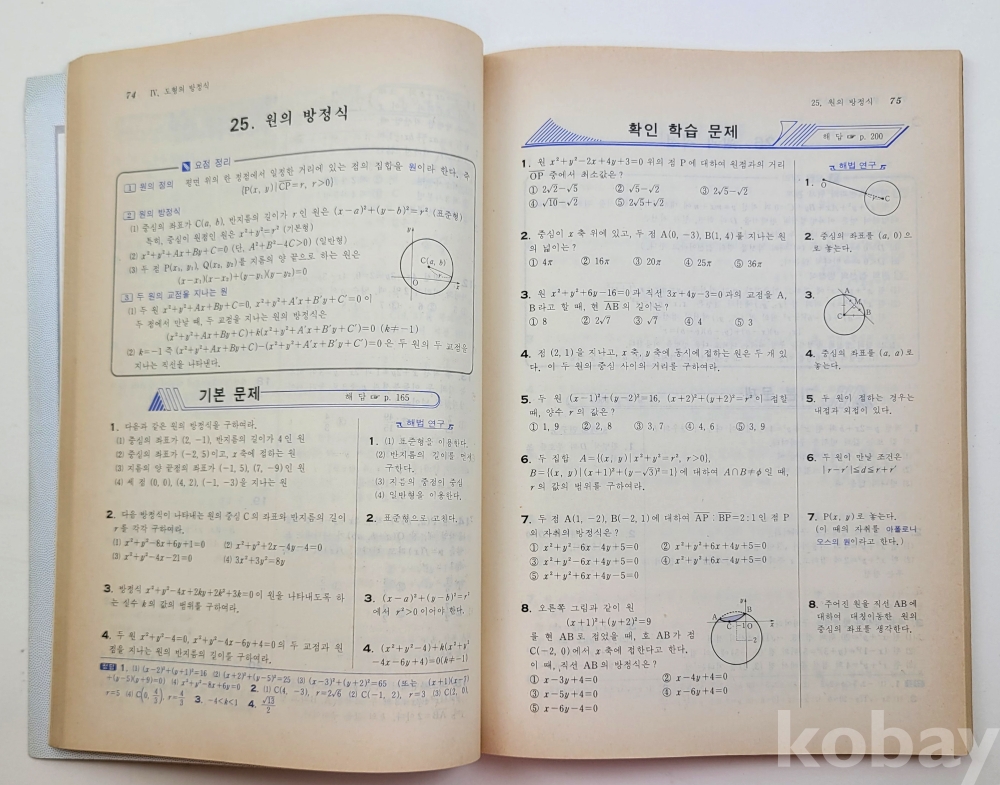 74 Ⅳ. 도형의 방정식
25. 원의 방정식
요점 정리
1 원의 정의 평면 위의 한 정점에서 일정한 거리에 있는 점의 집합을 원이라 한다. 즉
{P(x, y)|CP=r, r>0}
2 원의 방정식
(1) 중심의 좌표가 C(a, b), 반지름의 길이가 r인 원은 (x-a)²+(y-b)²=r² (표준형)
특히, 중심이 원점인 원은 x²+y²=r² (기본형)
(2) x²+y²+Ax+By+C=0 (단, A²+B²-4C>0) (일반형)
(3) 두 점 P(x₁, y₁), Q(x₂, y₂)를 지름의 양 끝으로 하는 원은
(x-x₁)(x-x₂)+(y-y₁)(y-y₂)=0
y
C(a, b)
r
O
x
3 두 원의 교점을 지나는 원
(1) 두 원 x²+y²+Ax+By+C=0, x²+y²+A′x+B′y+C′=0이
두 점에서 만날 때, 두 교점을 지나는 원의 방정식은
(x²+y²+Ax+By+C)+k(x²+y²+A′x+B′y+C′)=0 (k≠-1)
(2) k=-1 즉 (x²+y²+Ax+By+C)-(x²+y²+A′x+B′y+C′)=0은 두 원의 두 교점을
지나는 직선을 나타낸다.
기본 문제
해답 ☞ p. 165
1. 다음과 같은 원의 방정식을 구하여라.
(1) 중심의 좌표가 (2, -1), 반지름의 길이가 4인 원
(2) 중심의 좌표가 (-2, 5)이고, x축에 접하는 원
(3) 지름의 양 끝점의 좌표가 (-1, 5), (7, -9)인 원
(4) 세 점 (0, 0), (4, 2), (-1, -3)을 지나는 원
2. 다음 방정식이 나타내는 원의 중심 C의 좌표와 반지름의 길이
r를 각각 구하여라.
(1) x²+y²-8x+6y+1=0 (2) x²+y²+2x-4y-4=0
(3) x²+y²-4x-21=0 (4) 3x²+3y²=8y
3. 방정식 x²+y²-4x+2ky+2k²+3k=0이 원을 나타내도록 하
는 실수 k의 값의 범위를 구하여라.
4. 두 원 x²+y²-4=0, x²+y²-4x-6y+4=0의 두 교점과 원
점을 지나는 원의 반지름의 길이를 구하여라.
해법 연구
1. (1) 표준형을 이용한다.
(2) 반지름의 길이를 먼저
구한다.
(3) 지름의 중점이 중심
(4) 일반형을 이용한다.
2. 표준형으로 고친다.
3. (x-a)²+(y-b)²=r²
에서 r²>0이어야 한다.
4. (x²+y²-4)+k(x²+y²
-4x-6y+4)=0(k≠-1)
1. (1) (x-2)²+(y+1)²=16 (2) (x+2)²+(y-5)²=25 (3) (x-3)²+(y+2)²=65 (또는 (x+1)(x-7)
+(y-5)(y+9)=0) (4) x²+y²-8x+6y=0 2. (1) C(4, -3), r=2√6 (2) C(-1, 2), r=3 (3) C(2, 0),
r=5 (4) C(0, 4/3) r=4/3 3. -4<k<1 4. √13/2
25. 원의 방정식 75
확인 학습 문제
해답 ☞ p. 200
1. 원 x²+y²-2x+4y+3=0 위의 점 P에 대하여 원점과의 거리
OP 중에서 최소값은?
① 2√2-√5 ② √5-√2 ③ 2√5-√2
④ √10-√2 ⑤ 2√5+√2
2. 중심이 x축 위에 있고, 두 점 A(0, -3), B(1, 4)를 지나는 원
의 넓이는?
① 4π ② 16π ③ 20π ④ 25π ⑤ 36π
3. 원 x²+y²+6y-16=0과 직선 3x+4y-3=0과의 교점을 A,
B라고 할 때, 현 AB의 길이는?
① 8 ② 2√7 ③ √7 ④ 4 ⑤ 3
4. 점 (2, 1)을 지나고, x축, y축에 동시에 접하는 원은 두 개 있
다. 이 두 원의 중심 사이의 거리를 구하여라.
5. 두 원 (x-1)²+(y-2)²=16, (x+2)²+(y+2)²=r²이 접할
때, 양수 r의 값은?
① 1, 9 ② 2, 8 ③ 3, 7 ④ 4, 6 ⑤ 3, 9
6. 두 집합 A={(x, y)|x²+y²=r², r>0},
B={(x, y)|(x+1)²+(y-√3)²=1}에 대하여 A∩B≠ϕ일 때,
r의 값의 범위를 구하여라.
7. 두 점 A(1, -2), B(-2, 1)에 대하여 AP : BP=2 : 1인 점 P
의 자취의 방정식은?
① x²+y²-6x-4y+5=0 ② x²+y²+6x+4y+5=0
③ x²+y²-6x+4y+5=0 ④ x²+y²+6x-4y+5=0
⑤ x²+y²+6x+4y-5=0
8. 오른쪽 그림과 같이 원
(x+1)²+(y+2)²=9
를 현 AB로 접었을 때, 호 AB가 점
C(-2, 0)에서 x축에 접한다고 한다.
이 때, 직선 AB의 방정식은?
① x-3y+4=0 ② x-4y+4=0
③ x-5y+4=0 ④ x-6y+4=0
⑤ x-6y-4=0
y
A B
C -1 O x
-2
해법 연구
1. O
r C
2. 중심의 좌표를 (a, 0)으
로 놓는다.
3. A
M
C B
4. 중심의 좌표를 (a, a)로
놓는다.
5. 두 원이 접하는 경우는
내접과 외접이 있다.
6. 두 원이 만날 조건은
|r-r′|≦d≦r+r′
7. P(x, y)로 놓는다.
(이 때의 자취를 아폴로니
오스의 원이라고 한다.)
8. 주어진 원을 직선 AB에
대하여 대칭이동한 원의
중심의 좌표를 생각한다.
kobay